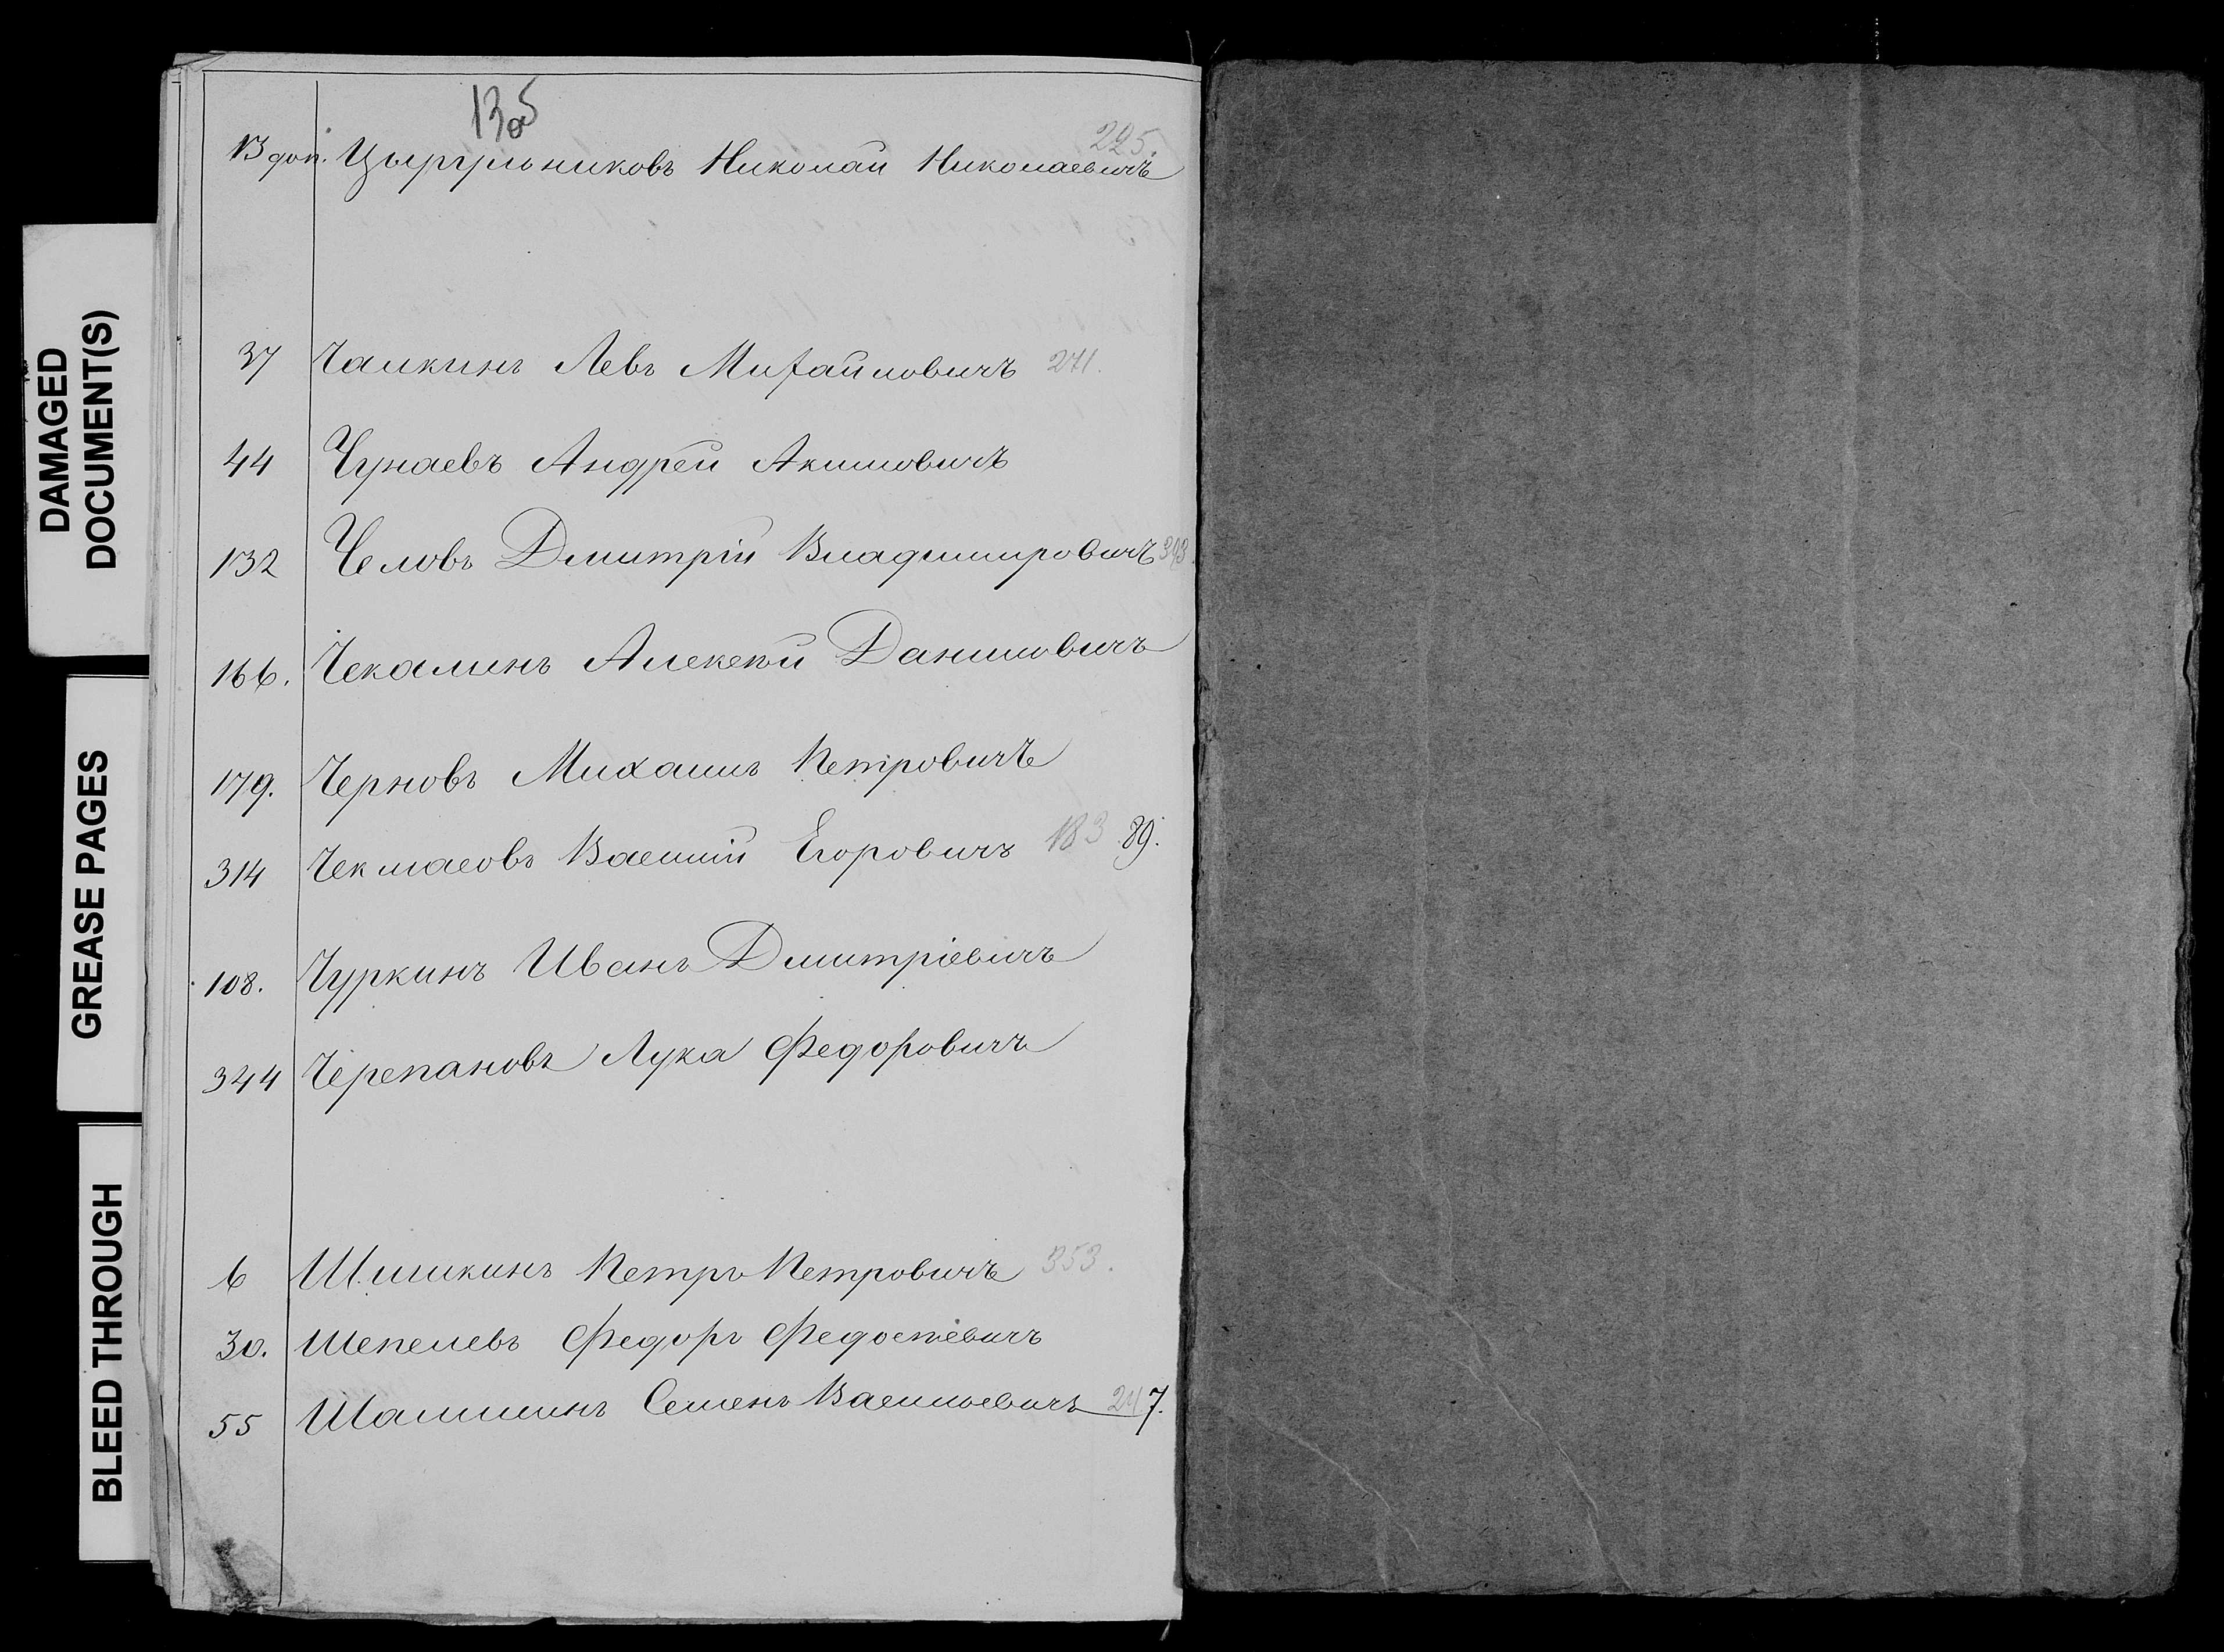 135
225.
13 доп. Цырульниковъ Николай Николаевичъ
37 Чалкинъ Левъ Михайловичъ 271.
44 Чунаевъ Андрей Акимовичъ
132 Человъ Дмитрій Владимировичъ 393.
166. Чекалинъ Алексѣй Даниловичъ
179. Черновъ Михаилъ Петровичъ
314 Чекмасовъ Василій Егоровичъ 183 89.
108. Чуркинъ Иванъ Дмитріевичъ
344 Черепановъ Лука Федоровичъ
6 Шишкинъ Петръ Петровичъ 353.
30. Шепелевъ Федоръ Федосѣевичъ
55 Шалишинъ Семенъ Васильевичъ 247.
DAMAGED
DOCUMENT(S)
GREASE PAGES
BLEED THROUGH